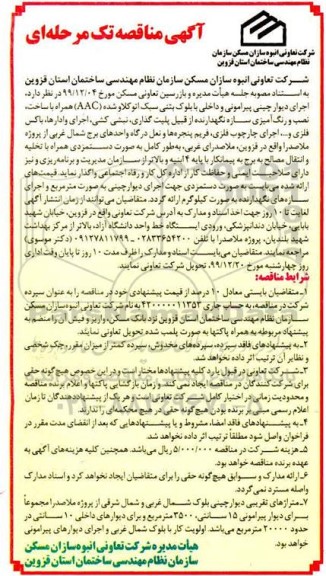 آگهی مناقصه تک مرحله‌ای
شرکت تعاونی انبوه سازان مسکن سازمان
نظام مهندسی ساختمان استان قزوین
شرکت تعاونی انبوه سازان مسکن سازمان نظام مهندسی ساختمان استان قزوین
به استناد مصوبه جلسه هیأت مدیره و بازرسین تعاونی مسکن مورخ ۹۹/۱۲/۰۴ در نظر دارد،
اجرای دیوار چینی پیرامونی و داخلی با بلوک بتنی سبک اتوکلاو شده (AAC) همراه با ساخت،
نصب و رنگ آمیزی سازه نگهدارنده از قبیل پلیت گذاری، نبشی کشی، اجرای وادارها، باکس
فلزی و... اجرای چارچوب فلزی، فریم پنجره‌ها و نعل درگاه واحدهای برج شمال غربی از پروژه
ملاصدرا واقع در قزوین، ملاصدرای غربی، به‌طور کامل به صورت دستمزدی همراه با تخلیه
و انتقال مصالح به برج به پیمانکار با پایه ۴ ابنیه و بالاتر از سازمان مدیریت و برنامه‌ریزی و نیز
دارای صلاحیت ایمنی و حفاظت کار از اداره کل کار و رفاه اجتماعی واگذار نماید. قیمت‌های
ارائه شده می‌بایست به صورت دستمزدی جهت اجرای دیوارچینی به صورت مترمربع و اجرای
سازه‌های نگهدارنده به صورت کیلوگرم ارائه گردد. متقاضیان می‌توانند از زمان انتشار آگهی
لغایت ۱۰ روز جهت اخذ اسناد و مدارک به آدرس شرکت تعاونی واقع در قزوین، خیابان شهید
بابایی، خیابان دندانپزشکی، ورودی ایستگاه خط واحد دانشگاه آزاد، بالاتر از مرکز بهداشت
شهید بلندیان، پروژه ملاصدرا با تلفن ۰۲۸۳۳۶۵۴۲۰۰ - ۰۹۱۲۷۸۱۱۷۹۹ (دکتر موسوی)
مراجعه نمایند. متقاضیان می‌بایست اسناد و مدارک را ظرف مدت ۱۰ روز تا پایان وقت اداری
روز چهارشنبه مورخ ۹۹/۱۲/۲۰، تحویل شرکت تعاونی نمایند.
شرایط مناقصه:
۱ـ متقاضیان بایستی معادل ۱۰ درصد از قیمت پیشنهادی خود در مناقصه را به عنوان سپرده
شرکت در مناقصه، به حساب جاری ۴۲۰۰۰۰۰۰۱۱۳۵۳ به نام شرکت تعاونی انبوه سازان مسکن
سازمان نظام مهندسی ساختمان استان قزوین نزد بانک مسکن، واریز و فیش آن را منضم به
پیشنهاد مربوطه به همراه پاکتها به صورت پلمب شده، تحویل تعاونی نمایند.
۲ـ به پیشنهادهای فاقد سپرده، سپرده‌های مخدوش، سپرده کمتر از میزان مقرر، چک شخصی
و نظایر آن ترتیب اثر داده نخواهد شد.
۳ـ شرکت تعاونی در قبول یا رد کلیه پیشنهادها مختار است و در این خصوص هیچ گونه حقی
برای شرکت کنندگان در مناقصه ایجاد نمی‌کند. و زمان بازگشایی پاکتها و اعلام برنده مناقصه
و محدودیت زمانی در اختیار کامل شرکت تعاونی است و هیچ یک از پیشنهاددهندگان تا زمان
اعلام رسمی مبنی بر برنده بودن هیچ‌گونه حقی در هیچ محکمه‌ای را ندارند.
۴ـ به پیشنهادهای فاقد امضا، مشروط و یا پیشنهادهایی که بعد از انقضای مدت مقرر در
فراخوان واصل شود مطلقاً ترتیب اثر داده نخواهد شد.
۵ـ هزینه شرکت در مناقصه ۵/۰۰۰/۰۰۰ ریال می‌باشد. همچنین کلیه هزینه‌های آگهی به
عهده برنده مناقصه خواهد بود.
۶ـ ارائه مدارک و سوابق هیچ‌گونه حقی را برای متقاضیان ایجاد نخواهد کرد و اسناد مدارک
واصله مسترد نمی‌گردد.
۷ـ متراژهای تقریبی دیوارچینی بلوک شمال غربی و شمال شرقی از پروژه ملاصدرا مجموعاً
برای دیوار پیرامونی ۱۵ سانتی، ۳۵۰۰۰ مترمربع و برای دیوارهای داخلی ۱۰ سانتی در
حدود ۲۰۰۰۰ مترمربع می‌باشد. اولویت کار با بلوک شمال غربی و اجرای دیوارهای پیرامونی
خواهد بود.
هیأت مدیره شرکت تعاونی انبوه سازان مسکن
سازمان نظام مهندسی ساختمان استان قزوین